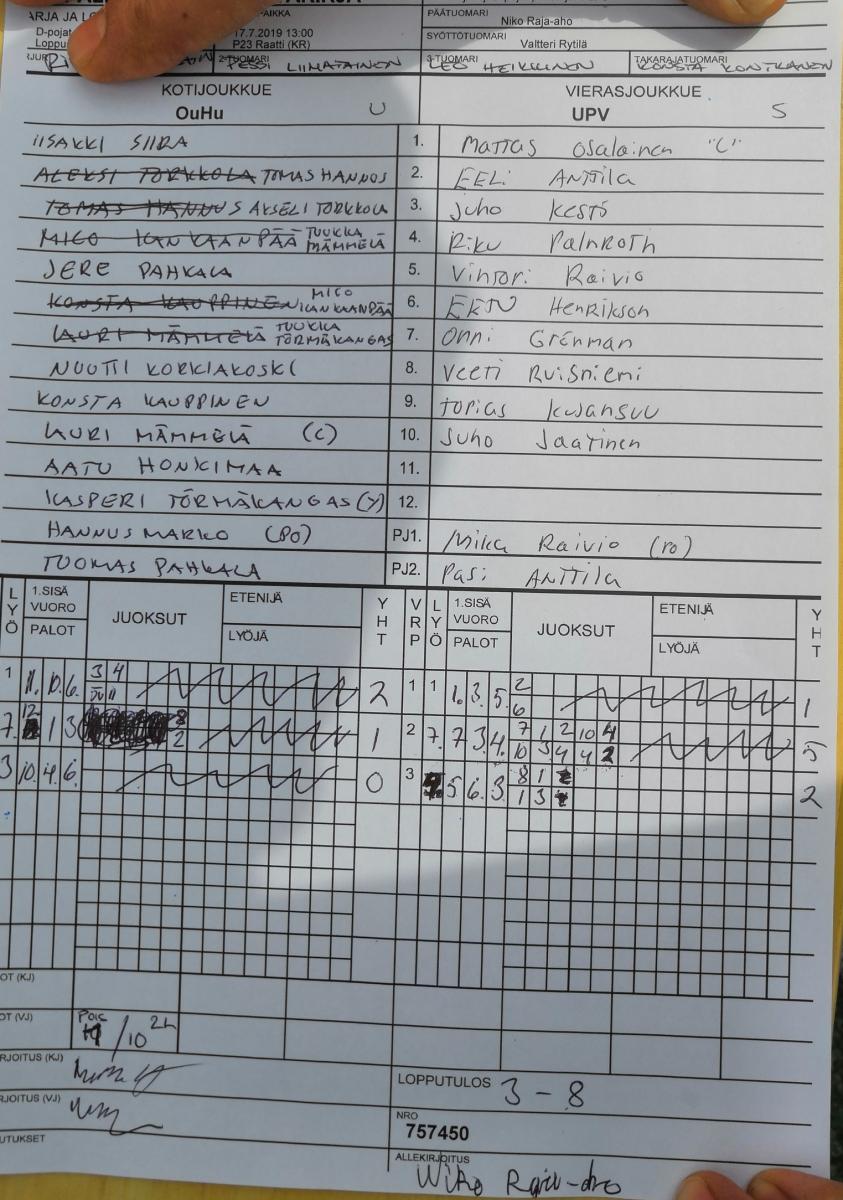 ARJA JA LO
D-pojat
Loppu
17.7.2019 13:00
P23 Raatti (KR)
PÄÄTUOMARI
Niko Raja-aho
SYÖTTÖTUOMARI
Valtteri Rytilä
2-TUOMARI PESSI LIIMATAINEN
3-TUOMARI LEO HEIKKINEN
TAKARAJATUOMARI KONSTA KONTKANEN
KOTIJOUKKUE
OuHu U
VIERASJOUKKUE
UPV S
IISAKKI SIIRA 1. Mattas Osalainen "C"
ALEKSI TORKKOLA TOMAS HANNUS 2. EELi ANTTila
TOMAS HANNUS AKSELI TORKKOLA 3. Juho KESTi
MICO KANKAANPÄÄ TUUKKA MÄMMELÄ 4. Riku PalnRoth
JERE PAHKALA 5. Vinтori Raivio
KONSTA KAUPPINEN MICO KANKAANPÄÄ 6. EETU HenRikson
LAURI MÄMMELÄ TUUKKA TÖRMÄKANGAS 7. Onni Grönman
NUUTTI KORKIAKOSKI 8. Veeti Ruisniemi
KONSTA KAUPPINEN 9. Topias Kujansuu
LAURI MÄMMELÄ (C) 10. Juho Jaatinen
AATU HONKIMAA 11.
KASPERI TÖRMÄKANGAS (Y) 12.
HANNUS MARKO (PO) PJ1. Mika Raivio (PO)
TUOMAS PAHKALA PJ2. Pasi ANTTila
LYÖ 1.SISÄ VUORO PALOT JUOKSUT ETENIJÄ LYÖJÄ YHT VRP LYÖ 1.SISÄ VUORO PALOT JUOKSUT ETENIJÄ LYÖJÄ YHT
1 11. 10. 6. 3 4 2 1 1 1. 3. 5. 2 6 1
7. 12 1 3 8 2 1 2 7. 7 3. 4. 7 1 2 10 4 10 3 4 4 2 5
3 10. 4. 6. 0 3 5 6. 3. 8 1 1 3 2
OT (KJ)
OT (VJ) Pois /10 2L
RJOITUS (KJ)
RJOITUS (VJ)
UTUKSET
LOPPUTULOS 3 - 8
NRO
757450
ALLEKIRJOITUS
Niko Raja-aho